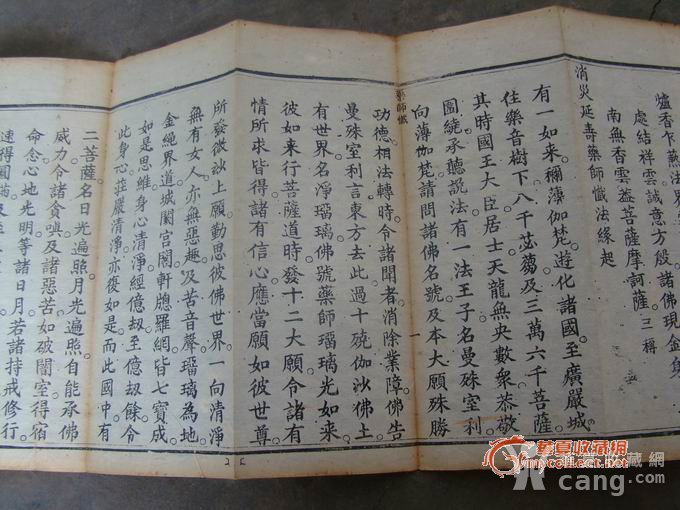 爐香乍爇法
處結祥雲誠意方殷諸佛現金身
南無香雲蓋菩薩摩訶薩三稱
消災延壽藥師懺法緣起
有一如來。禰薄伽梵。遊化諸國。至廣嚴城。
住樂音樹下八千苾芻。及三萬六千菩薩。
其時國王大臣居士天龍無央數衆恭敬
圍繞承聽說法有一法王子名曼殊室利
向薄伽梵請問諸佛名號及本大願殊勝
藥師懺
一
功德相法轉時令諸聞者消除業障佛告
曼殊室利言東方去此過十殑伽沙佛土
有世界名淨瑠璃佛號藥師瑠璃光如來
彼如來行菩薩道時發十二大願令諸有
情所求皆得諸有信心應當願如彼世尊
所發微妙上願勤思彼佛世界一向清淨
無有女人亦無惡趣及苦音聲瑠璃為地
金繩界道城闕宮閣軒牕羅網皆七寶成
如是思維身心清淨經億劫至億劫餘令
此身心莊嚴清淨亦復如是而此國中有
二菩薩名日光遍照月光遍照自能承佛
威力令諸貪嗔及諸惡苦如破闇室得宿
命念心地光明等諸日月若諸持戒修行
速得圓滿及
華夏收藏網
mycollect.net
收藏網
cang.com